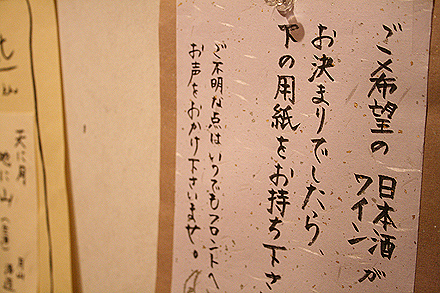 ご希望の日本酒が
ワイン
お決まりでしたら、
下の用紙をお持ち下さ
ご不明な点はいつでもフロントへ
お声をおかけ下さいませ。
天に月
地に山